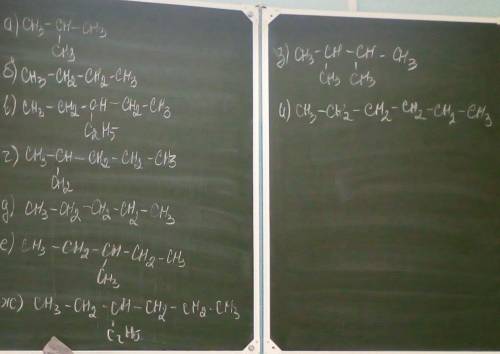 а) CH3-CH-CH3
CH3
б) CH3-CH2-CH2-CH3
в) CH3-CH2-CH-CH2-CH3
C2H5
г) CH3-CH-CH2-CH2-CH3
CH2
д) CH3-CH2-CH2-CH2-CH3
е) CH3-CH2-CH-CH2-CH3
CH3
ж) CH3-CH2-CH-CH2-CH2-CH3
C2H5
з) CH3-CH-CH-CH3
CH3 CH3
и) CH3-CH2-CH2-CH2-CH2-CH3